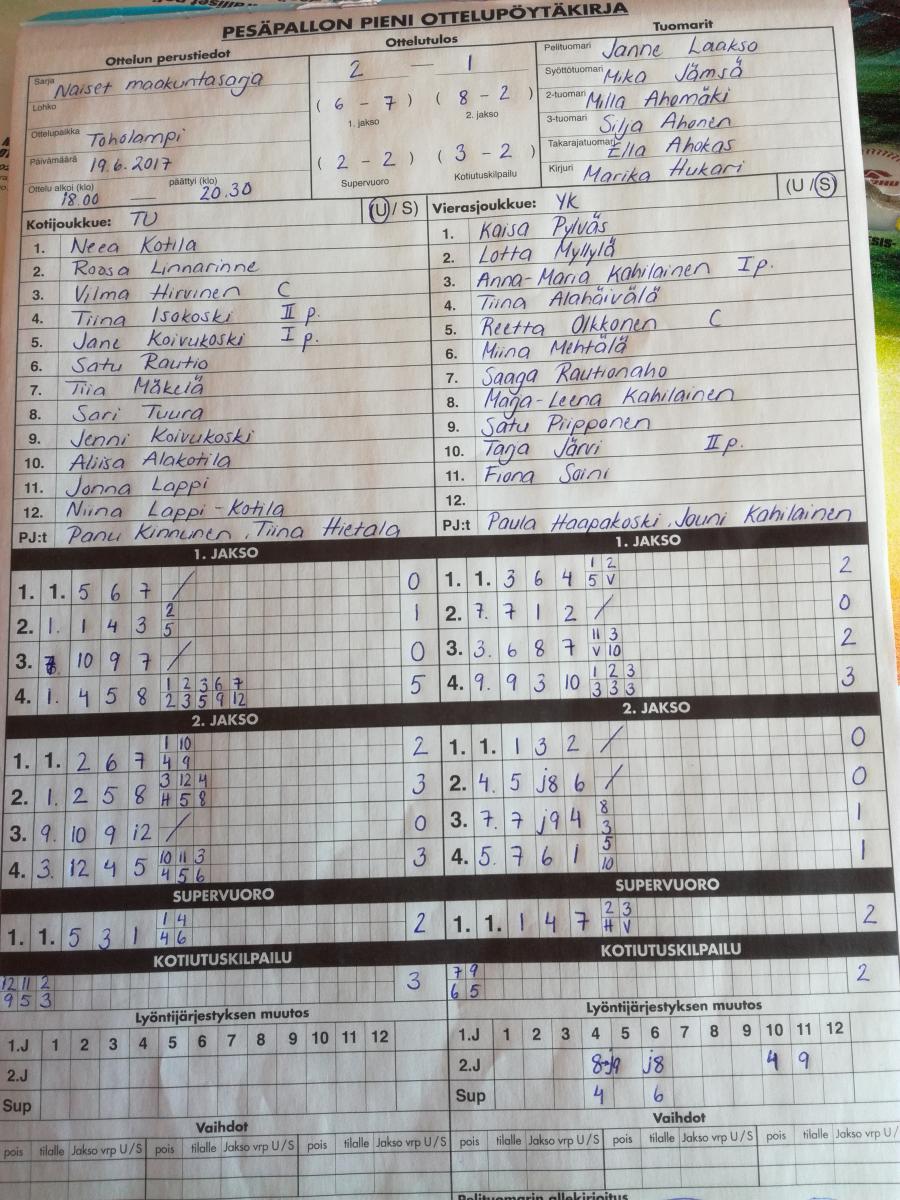 PESÄPALLON PIENI OTTELUPÖYTÄKIRJA
Ottelun perustiedot
Sarja Naiset maakuntasarja
Lohko
Ottelupaikka Toholampi
Päivämäärä 19.6.2017
Ottelu alkoi (klo) päättyi (klo)
18.00 — 20.30
Ottelutulos
2 — 1
( 6 - 7 ) ( 8 - 2 )
1. jakso 2. jakso
( 2 - 2 ) ( 3 - 2 )
Supervuoro Kotiutuskilpailu
Tuomarit
Pelituomari Janne Laakso
Syöttötuomari Mika Jämsä
2-tuomari Milla Ahomäki
3-tuomari Silja Ahonen
Takarajatuomari Ella Ahokas
Kirjuri Marika Hukari
Kotijoukkue: TU (U / S)
1. Neea Kotila
2. Roosa Linnarinne
3. Vilma Hirvinen C
4. Tiina Isokoski II p.
5. Jane Koivukoski I p.
6. Satu Rautio
7. Tiia Mäkelä
8. Sari Tuura
9. Jenni Koivukoski
10. Aliisa Alakotila
11. Jonna Lappi
12. Niina Lappi-Kotila
PJ:t Panu Kinnunen, Tiina Hietala
Vierasjoukkue: YK (U / S)
1. Kaisa Pylväs
2. Lotta Myllylä
3. Anna-Maria Kahilainen I p.
4. Tiina Alahäivälä
5. Reetta Olkkonen C
6. Miina Mehtälä
7. Saaga Rautionaho
8. Maija-Leena Kahilainen
9. Satu Piipponen
10. Tarja Järvi II p.
11. Fiona Soini
12.
PJ:t Paula Haapakoski, Jouni Kahilainen
1. JAKSO
1. 1. 5 6 7 / 0
2. 1. 1 4 3 2 1
5
3. 10 9 7 / 0
4. 1. 4 5 8 1 2 3 6 7 5
2 3 5 9 12
2. JAKSO
1. 1. 2 6 7 1 10 2
4 9
2. 1. 2 5 8 3 12 4 3
H 5 8
3. 9. 10 9 12 / 0
4. 3. 12 4 5 10 11 3 3
4 5 6
SUPERVUORO
1. 1. 5 3 1 1 4 2
4 6
KOTIUTUSKILPAILU
12 11 2 3
9 5 3
Lyöntijärjestyksen muutos
1.J 1 2 3 4 5 6 7 8 9 10 11 12
2.J
Sup
Vaihdot
pois tilalle Jakso vrp U / S pois tilalle Jakso vrp U / S pois tilalle Jakso vrp U / S
1. JAKSO
1. 1. 3 6 4 1 2 2
5 V
2. 7. 7 1 2 / 0
3. 3. 6 8 7 11 3 2
V 10
4. 9. 9 3 10 1 2 3 3
3 3 3
2. JAKSO
1. 1. 1 3 2 / 0
2. 4. 5 j8 6 / 0
3. 7. 7 j9 4 8 1
3
4. 5. 7 6 1 5 1
10
SUPERVUORO
1. 1. 1 4 7 2 3 2
H V
KOTIUTUSKILPAILU
7 9 2
6 5
Lyöntijärjestyksen muutos
1.J 1 2 3 4 5 6 7 8 9 10 11 12
2.J j9 j8 4 9
Sup 4 6
Vaihdot
pois tilalle Jakso vrp U / S pois tilalle Jakso vrp U / S pois tilalle Jakso vrp U /
Pelituomarin allekirjoitus